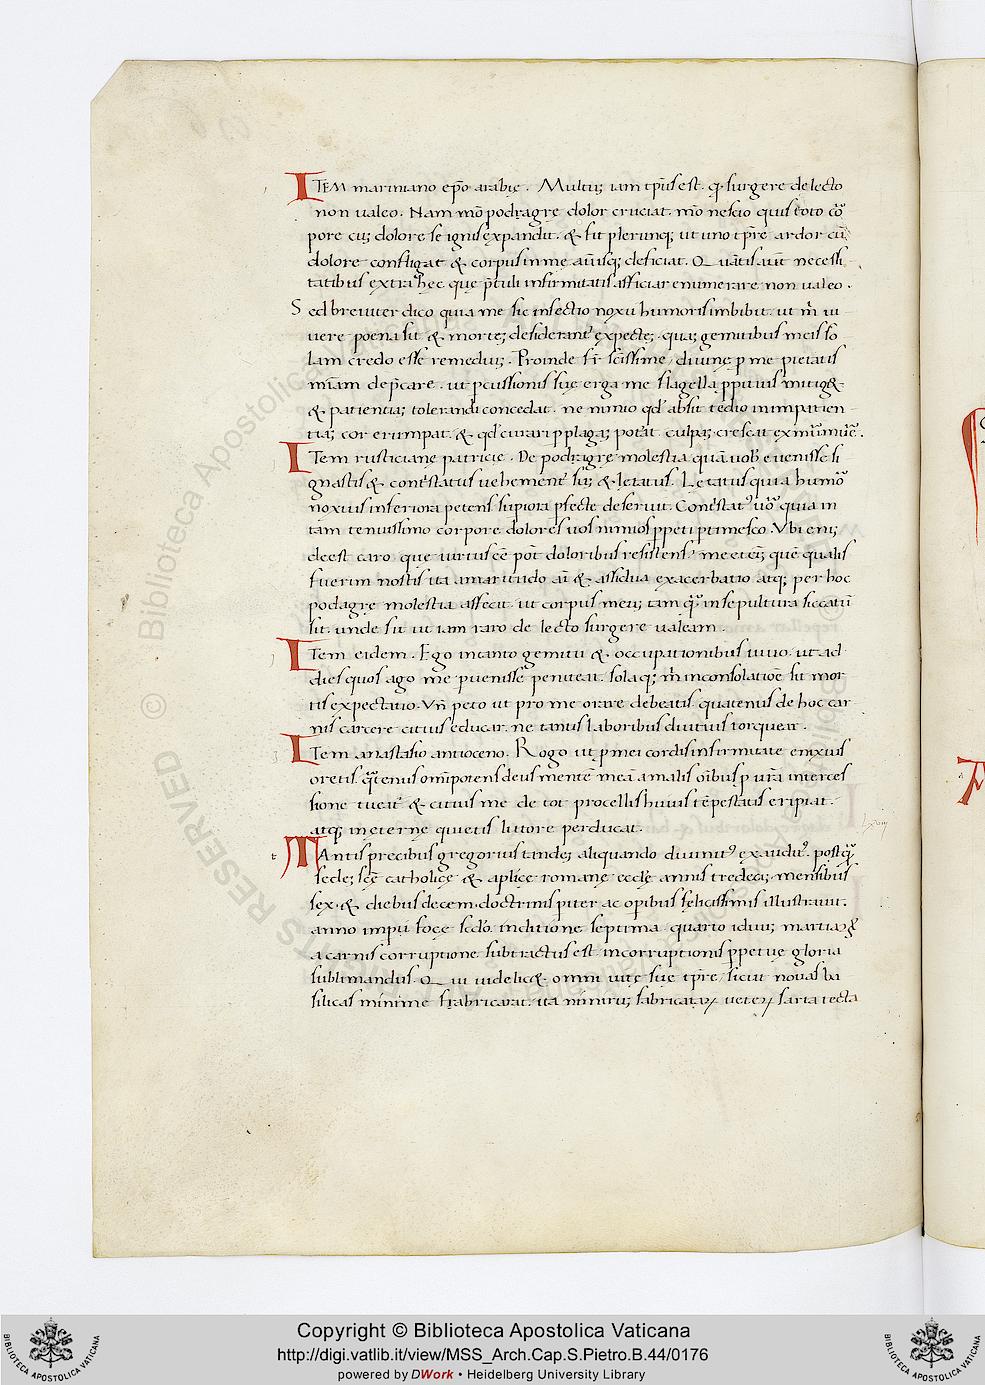 ITEM marıniano ep̄o arabię. Multũ iam tp̄uſ eſt. qđ ſurgere de lecto
non valeo. Nam mõ podagrę dolor cruciat. mõ neſcio quiſ toto cor
pore cũ dolore ſe igniſ expandit. & fit plerunq; ut uno tp̄re ardor cũ
dolore confligat & corpuſ in me animuſq; deficiat. Quantiſ aut neceſſi
tatibuſ extra hęc quę p̄tuli infirmitatiſ afficiar enumerare non valeo.
Sed breuiter dico quia me ſic infectio noxii humoriſ imbibit. ut m̄ ui
uere poena ſit & mortẽ deſideranter expectẽ. quã gemitibuſ meiſ ſo
lam credo eſſe remediũ. Proinde fr̄ ſc̄iſſime diuinę p me pietatiſ
miam dep̄care. ut pcuſſioniſ ſuę erga me flagella ppitiuſ mitig&
& patientiã tolerandi concedat. ne nimio qđ abſit tedio in impatien
tiã cor erumpat. & qđ curari p plagã poterat culpa creſcat ex murmure.
ITem ruſticianę patricię. De podagrę moleſtia quã uob eueniſſe ſi
gnaſtiſ & contriſtatuſ uehementer ſũ & lętatuſ. Lętatuſ quia humor
noxiuſ inferiora petenſ ſupiora pfecte deſeruit. Contriſtatuſ uero quia in
tam tenuiſſimo corpore doloreſ uoſ nimioſ ppeti ptimeſco. Vbi enĩ
deeſt caro que uirtuſ eē pot doloribuſ reſiſtenſ? me etenĩ quẽ qualiſ
fuerim noſtiſ ita amaritudo animi & aſſidua exacerbatio atq; per hoc
podagrę moleſtia affecit. ut corpuſ meũ tam q̃ in ſepultura ſiccatũ
ſit. unde fit ut iam raro de lecto ſurgere valeam.
ITem eidem. Ego in tanto gemitu & occupationibuſ uiuo. ut ad
dieſ quoſ ago me pueniſſe peniteat. ſolaq; m̄ in conſolatioē ſit mor
tiſ expectatio. Vñ peto ut pro me orare debeatiſ. quatenuſ de hoc car
niſ carcere citiuſ educar. ne tantiſ laboribuſ diutiuſ torquear.
ITem anaſtaſio antioceno. Rogo ut p mei cordiſ infirmitate enixiuſ
oretiſ q̃tenuſ omp̄otenſ deuſ mentẽ meã a maliſ oĩbuſ p ur̄a interceſ
ſione tueat & citiuſ me de tot procelliſ huiuſ tẽpeſtatiſ eripiat.
atq; in eternę quietiſ littore perducat.
TAntiſ precibuſ gregoriuſ tandẽ aliquando diuinituſ exaudituſ. poſtq̃
ſedẽ ſc̄ę catholicę & aplicę romanę eccl̄ę anniſ tredecĩ. menſibuſ
ſex. & diebuſ decem. doctriniſ piter ac opibuſ feliciſſimiſ illuſtrauit.
anno impii focę ſcđo. indictione ſeptima quarto iduũ martiaꝝ
a carniſ corruptione ſubtractuſ eſt. incorruptioniſ ppetuę gloria
ſublimanduſ. Qui uidelic& omni uitę ſuę tp̄re ſicut nouaſ ba
ſilicaſ minime fabricarat. ita nimirũ fabricataꝝ ueterũ ſarta tecta
lxviij
© Biblioteca Apostolica Vaticana
RIGHTS RESERVED
Copyright © Biblioteca Apostolica Vaticana
http://digi.vatlib.it/view/MSS_Arch.Cap.S.Pietro.B.44/0176
powered by DWork • Heidelberg University Library
BIBLIOTECA APOSTOLICA VATICANA
BIBLIOTECA APOSTOLICA VATICANA